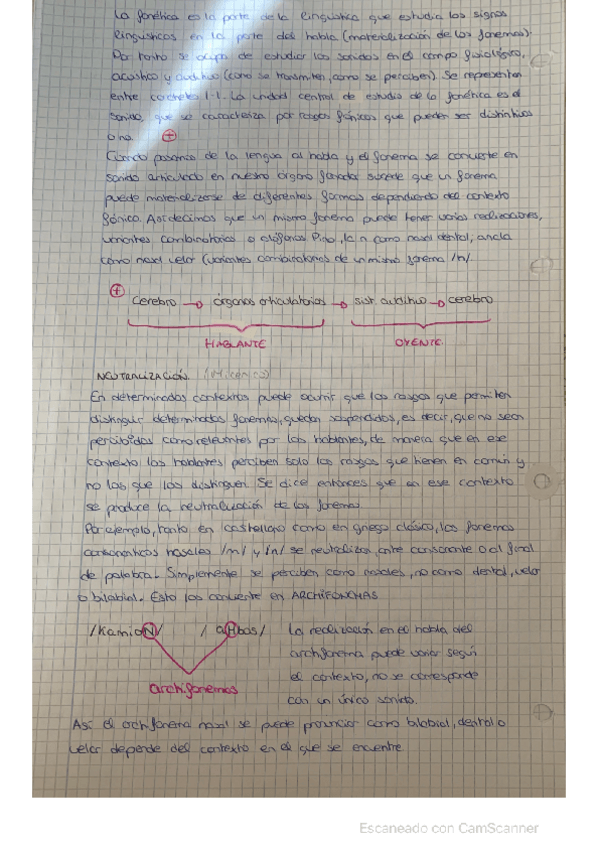 La fonética es la parte de la lingüística que estudia los signos
lingüísticos en la parte del habla (materialización de los fonemas).
Por tanto se ocupa de estudiar los sonidos en el campo fisiológico,
acústico y auditivo (como se transmiten, como se perciben). Se representan
entre corchetes [-]. La unidad central de estudio de la fonética es el
sonido, que se caracteriza por rasgos fónicos que pueden ser distintivos
o no. +
Cuando pasamos de la lengua al habla y el fonema se convierte en
sonido articulado en nuestro órgano fonador sucede que un fonema
puede materializarse de diferentes formas dependiendo del contexto
fónico. Así decimos que un mismo fonema puede tener varias realizaciones,
variantes combinatorias o alófonos. la n como nasal dental, ancla
como nasal velar (variantes combinatorias de un mismo fonema /n/.
+ Cerebro → órganos articulatorios → sist. auditivo → cerebro
HABLANTE OYENTE
NEUTRALIZACIÓN.
En determinados contextos puede ocurrir que los rasgos que permiten
distinguir determinados fonemas, quedan suspendidos, es decir, que no sean
percibidos como relevantes por los hablantes, de manera que en ese
contexto los hablantes perciben solo los rasgos que tienen en común y
no los que los distinguen. Se dice entonces que en ese contexto
se produce la neutralización de los fonemas.
Por ejemplo, tanto en castellano como en griego clásico, los fonemas
consonánticos nasales /m/ y /n/ se neutralizan ante consonante o al final
de palabra. Simplemente se perciben como nasales, no como dental, velar
o bilabial. Esto los convierte en
/KamioN/ / aMbas/ La realización en el habla del
archifonema puede variar según
el contexto, no se corresponde
archifonemas
con un único sonido.
Así el archifonema nasal se puede pronunciar como bilabial, dental o
velar depende del contexto en el que se encuentre
Escaneado con CamScanner